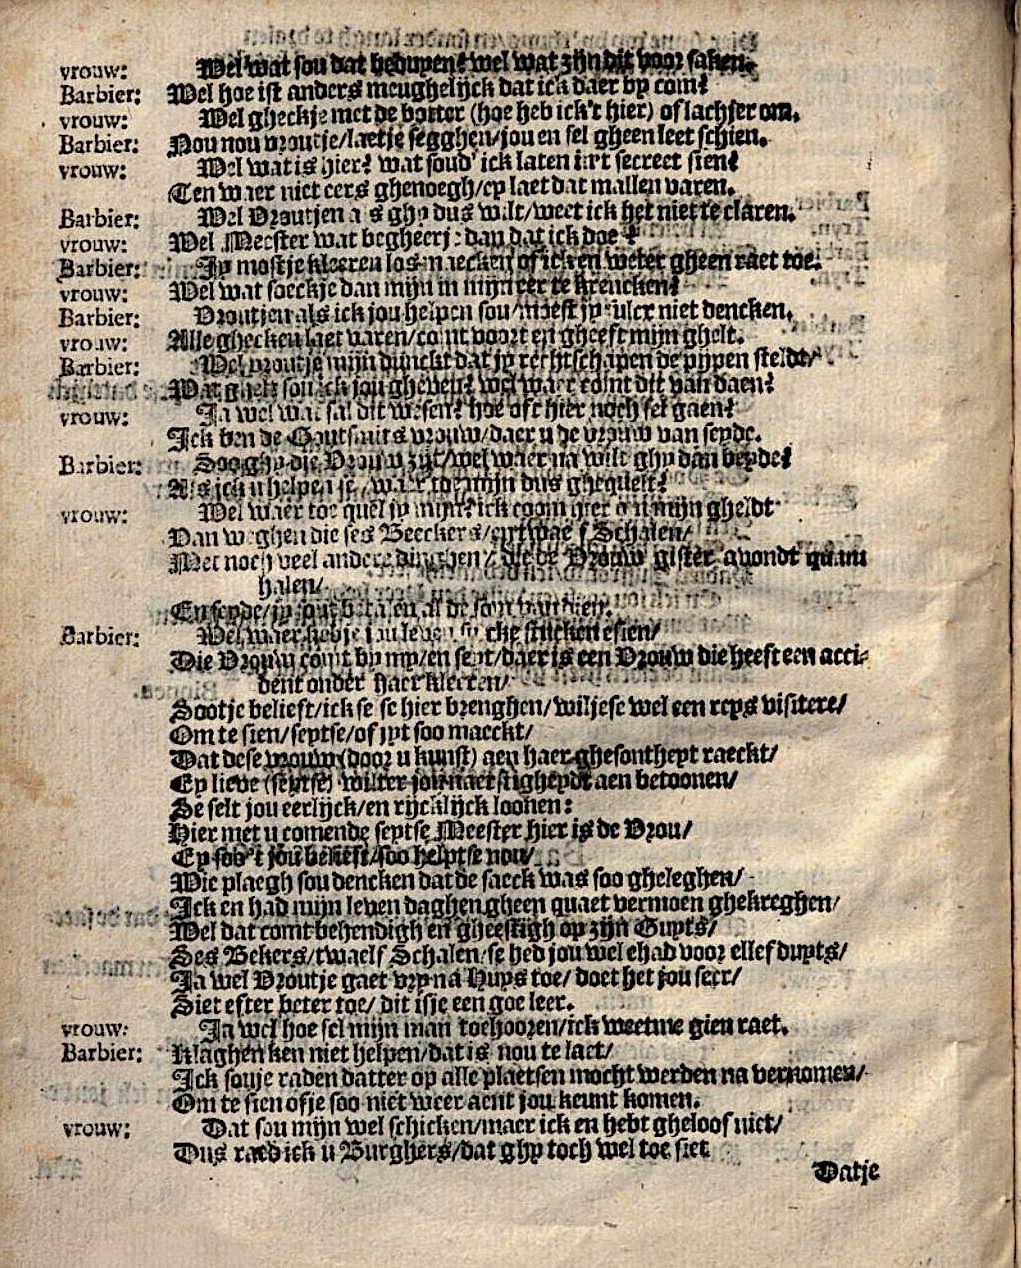 vrouw: Wel wat sou dat beduyen? wel wat zijn dit voor saken.
Barbier: Wel hoe ist anders meughelijck dat ick daer by com?
vrouw: Wel gheckje met de botter (hoe heb ick't hier) of lachser om.
Barbier: Nou nou vroutje/laetje segghen/jou en sel gheen leet schien.
vrouw: Wel wat is hier? wat soud' ick laten in't secreet sien?
Ten waer niet eers ghenoegh/ey laet dat mallen varen.
Barbier: Wel Vroutjen as ghy dus wilt/weet ick het niet te claren.
vrouw: Wel Meester wat begheerje dan dat ick doe?
Barbier: Jy mostje kleeren los maecken of ick en weter gheen raet toe.
vrouw: Wel wat soeckje dan mijn in mijn eer te krencken?
Barbier: Vroutjen als ick jou helpen sou/moest jy sulcx niet dencken.
vrouw: Alle ghecken laet varen/comt voort en gheeft mijn ghelt.
Barbier: Wel vroutje mijn dunckt dat jy rechtschapen de pijpen steldt/
Wat ghelt sou ick jou gheven? wel waer comt dit van daen?
vrouw: Ja wel wat sal dit wesen? hoe oft hier noch sel gaen?
Ick ben de Goutsmits vrouw/daer u de vrouw van seyde.
Barbier: Soo ghy die Vrouw zijt/wel waer na wilt ghy dan beyde?
Als ick u helpen sel, waer toe mijn dus ghequelt?
vrouw: Wel waer toe quel jy mijn? ick coom hier om mijn gheldt
Van weghen die ses Beeckers/en twaelf Schalen/
Met noch veel andere dinghen/ die de Vrouw gister avondt quam
halen/
En seyde/jy sout betalen al de som van dien.
Barbier: Wel waer hebje jou leven sucke stucken esien/
Die Vrouw comt by my/en seyt/daer is een Vrouw die heeft een acci-
dent onder haer kleeren/
Sootje belieft/ick se se hier brenghen/wiljese wel een reys visitere/
Om te sien/seytse/of jyt soo maeckt/
Dat dese vrouw (door u kunst) aen haer ghesontheyt raeckt/
Ey lieve (seytse) wilter jou naerstigheydt aen betoonen/
Se selt jou eerlijck/en rijcklijck loonen:
Hier met u comende seytse Meester hier is de Vrou/
Ey soo't jou belieft/soo helptse nou/
Wie plaegh sou dencken dat de saeck was soo gheleghen/
Ick en had mijn leven daghen gheen quaet vermoen ghekreghen/
Wel dat comt behendigh en gheestigh op zijn Guyts/
Ses Bekers/twaelf Schalen/se hed jou wel ehad voor ellef duyts/
Ja wel Vroutje gaet vry na Huys toe/ doet het jou seer/
Siet efter beter toe/ dit isje een goe leer.
vrouw: Ja wel hoe sel mijn man toehooren/ick weetme gien raet.
Barbier: Klaghen ken niet helpen/dat is nou te laet/
Ick souje raden datter op alle plaetsen mocht werden na vernomen/
Om te sien ofje soo niet weer aent jou keunt komen.
vrouw: Dat sou mijn wel schicken/maer ick en hebt gheloof niet/
Dus raed ick u Burghers/dat ghy toch wel toe siet
Datje